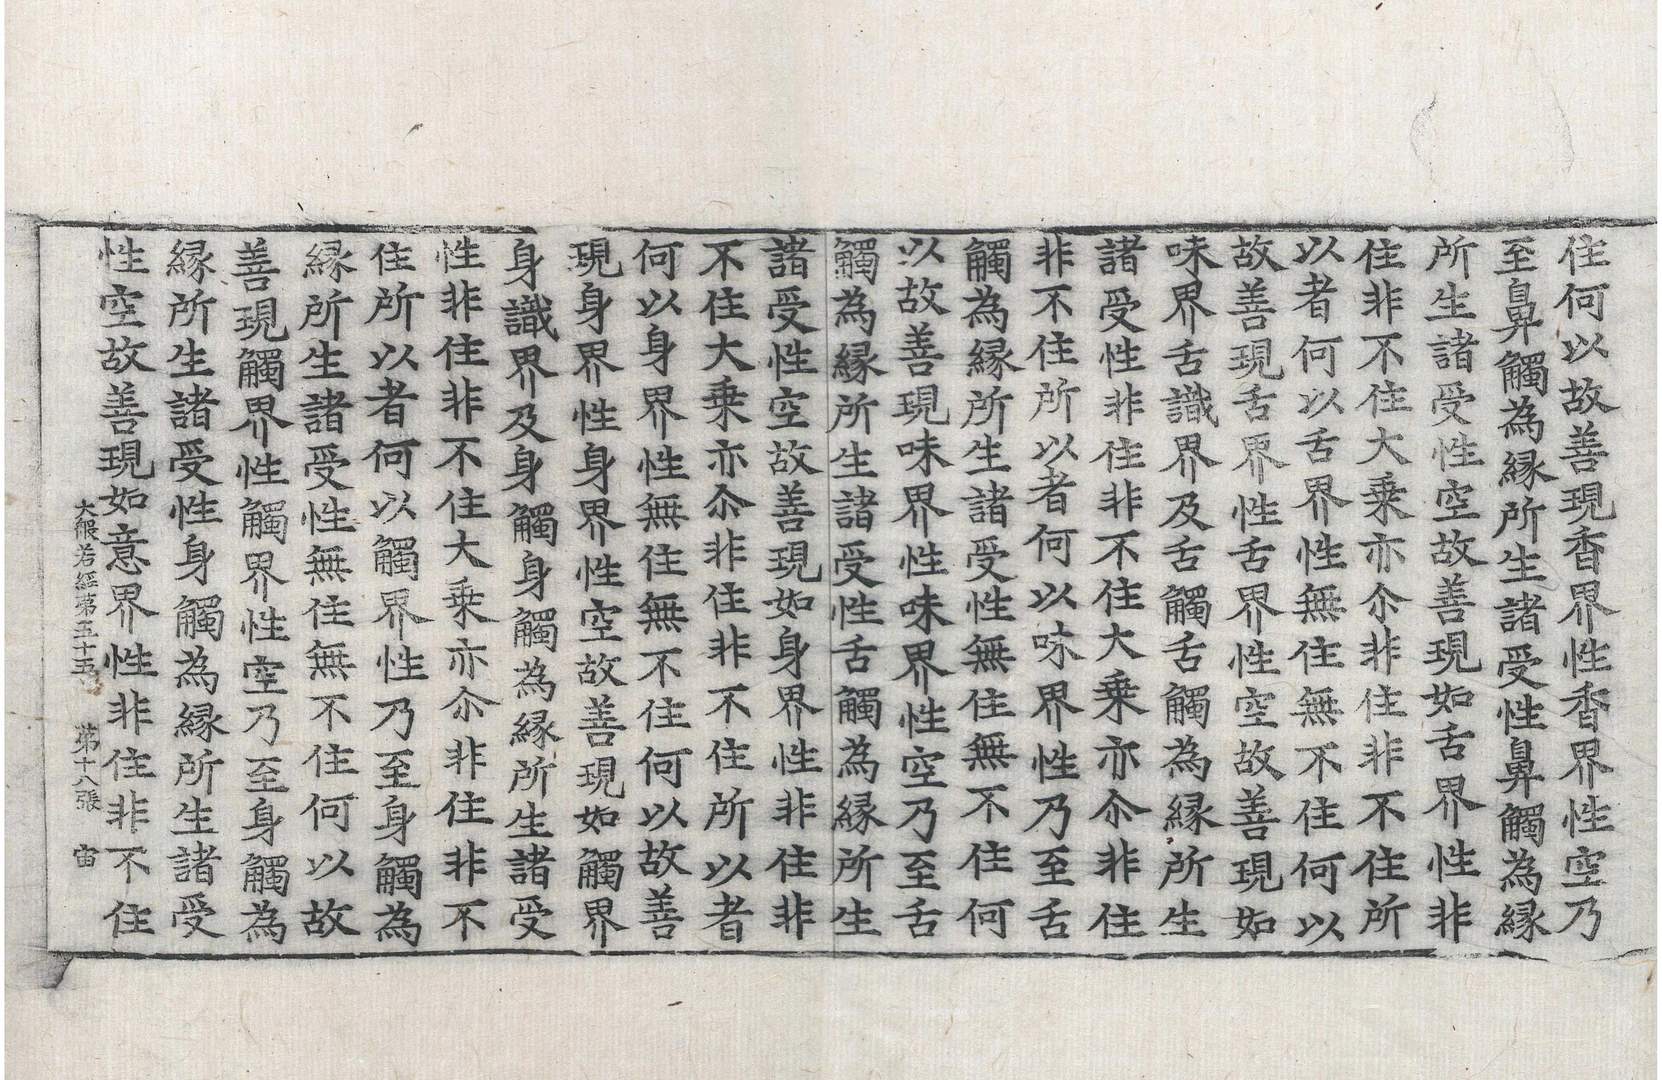 住何以故善現香界性香界性空乃
至鼻觸為縁所生諸受性鼻觸為縁
所生諸受性空故善現如舌界性非
住非不住大乗亦尒非住非不住所
以者何以舌界性無住無不住何以
故善現舌界性舌界性空故善現如
味界舌識界及舌觸舌觸為縁所生
諸受性非住非不住大乗亦尒非住
非不住所以者何以味界性乃至舌
觸為縁所生諸受性無住無不住何
以故善現味界性味界性空乃至舌
觸為縁所生諸受性舌觸為縁所生
諸受性空故善現如身界性非住非
不住大乗亦尒非住非不住所以者
何以身界性無住無不住何以故善
現身界性身界性空故善現如觸界
身識界及身觸身觸為縁所生諸受
性非住非不住大乗亦尒非住非不
住所以者何以觸界性乃至身觸為
縁所生諸受性無住無不住何以故
善現觸界性觸界性空乃至身觸為
縁所生諸受性身觸為縁所生諸受
性空故善現如意界性非住非不住
大般若經第五十五 第十八張 宙